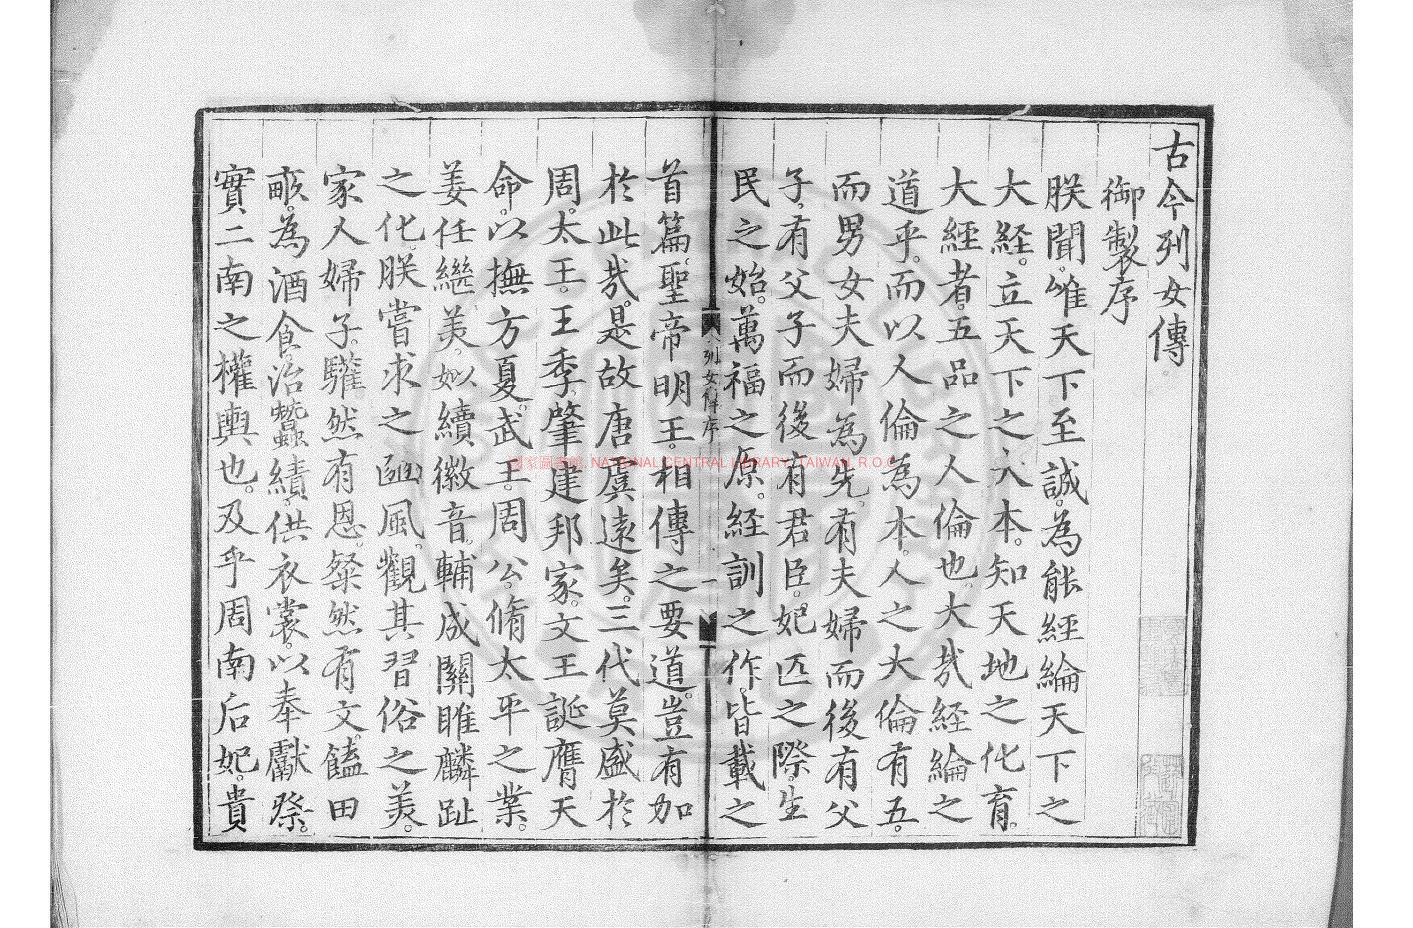 古今列女傳
御製序
朕聞。唯天下至誠。為能經綸天下之
大經。立天下之大本。知天地之化育。
大經者。五品之人倫也。大哉經綸之
道乎。而以人倫為本。人之大倫有五。
而男女夫婦為先。有夫婦而後有父
子。有父子而後有君臣。妃匹之際。生
民之始。萬福之原。經訓之作。皆載之
列女傳序
一
首篇。聖帝明王。相傳之要道。豈有加
於此哉。是故唐虞遠矣。三代莫盛於
周。太王。王季肇建邦家。文王誕膺天
命。以撫方夏。武王。周公。脩太平之業。
姜任繼美。姒以續徽音。輔成關雎麟趾
之化。朕嘗求之豳風。觀其習俗之美。
家人婦子。驩然有恩。粲然有文。饁田
畝。為酒食。治蠶績。供衣裳。以奉獻祭。
實二南之權輿也。及乎周南后妃。貴
國家圖書館 NATIONAL CENTRAL LIBRARY, TAIWAN, R.O.C